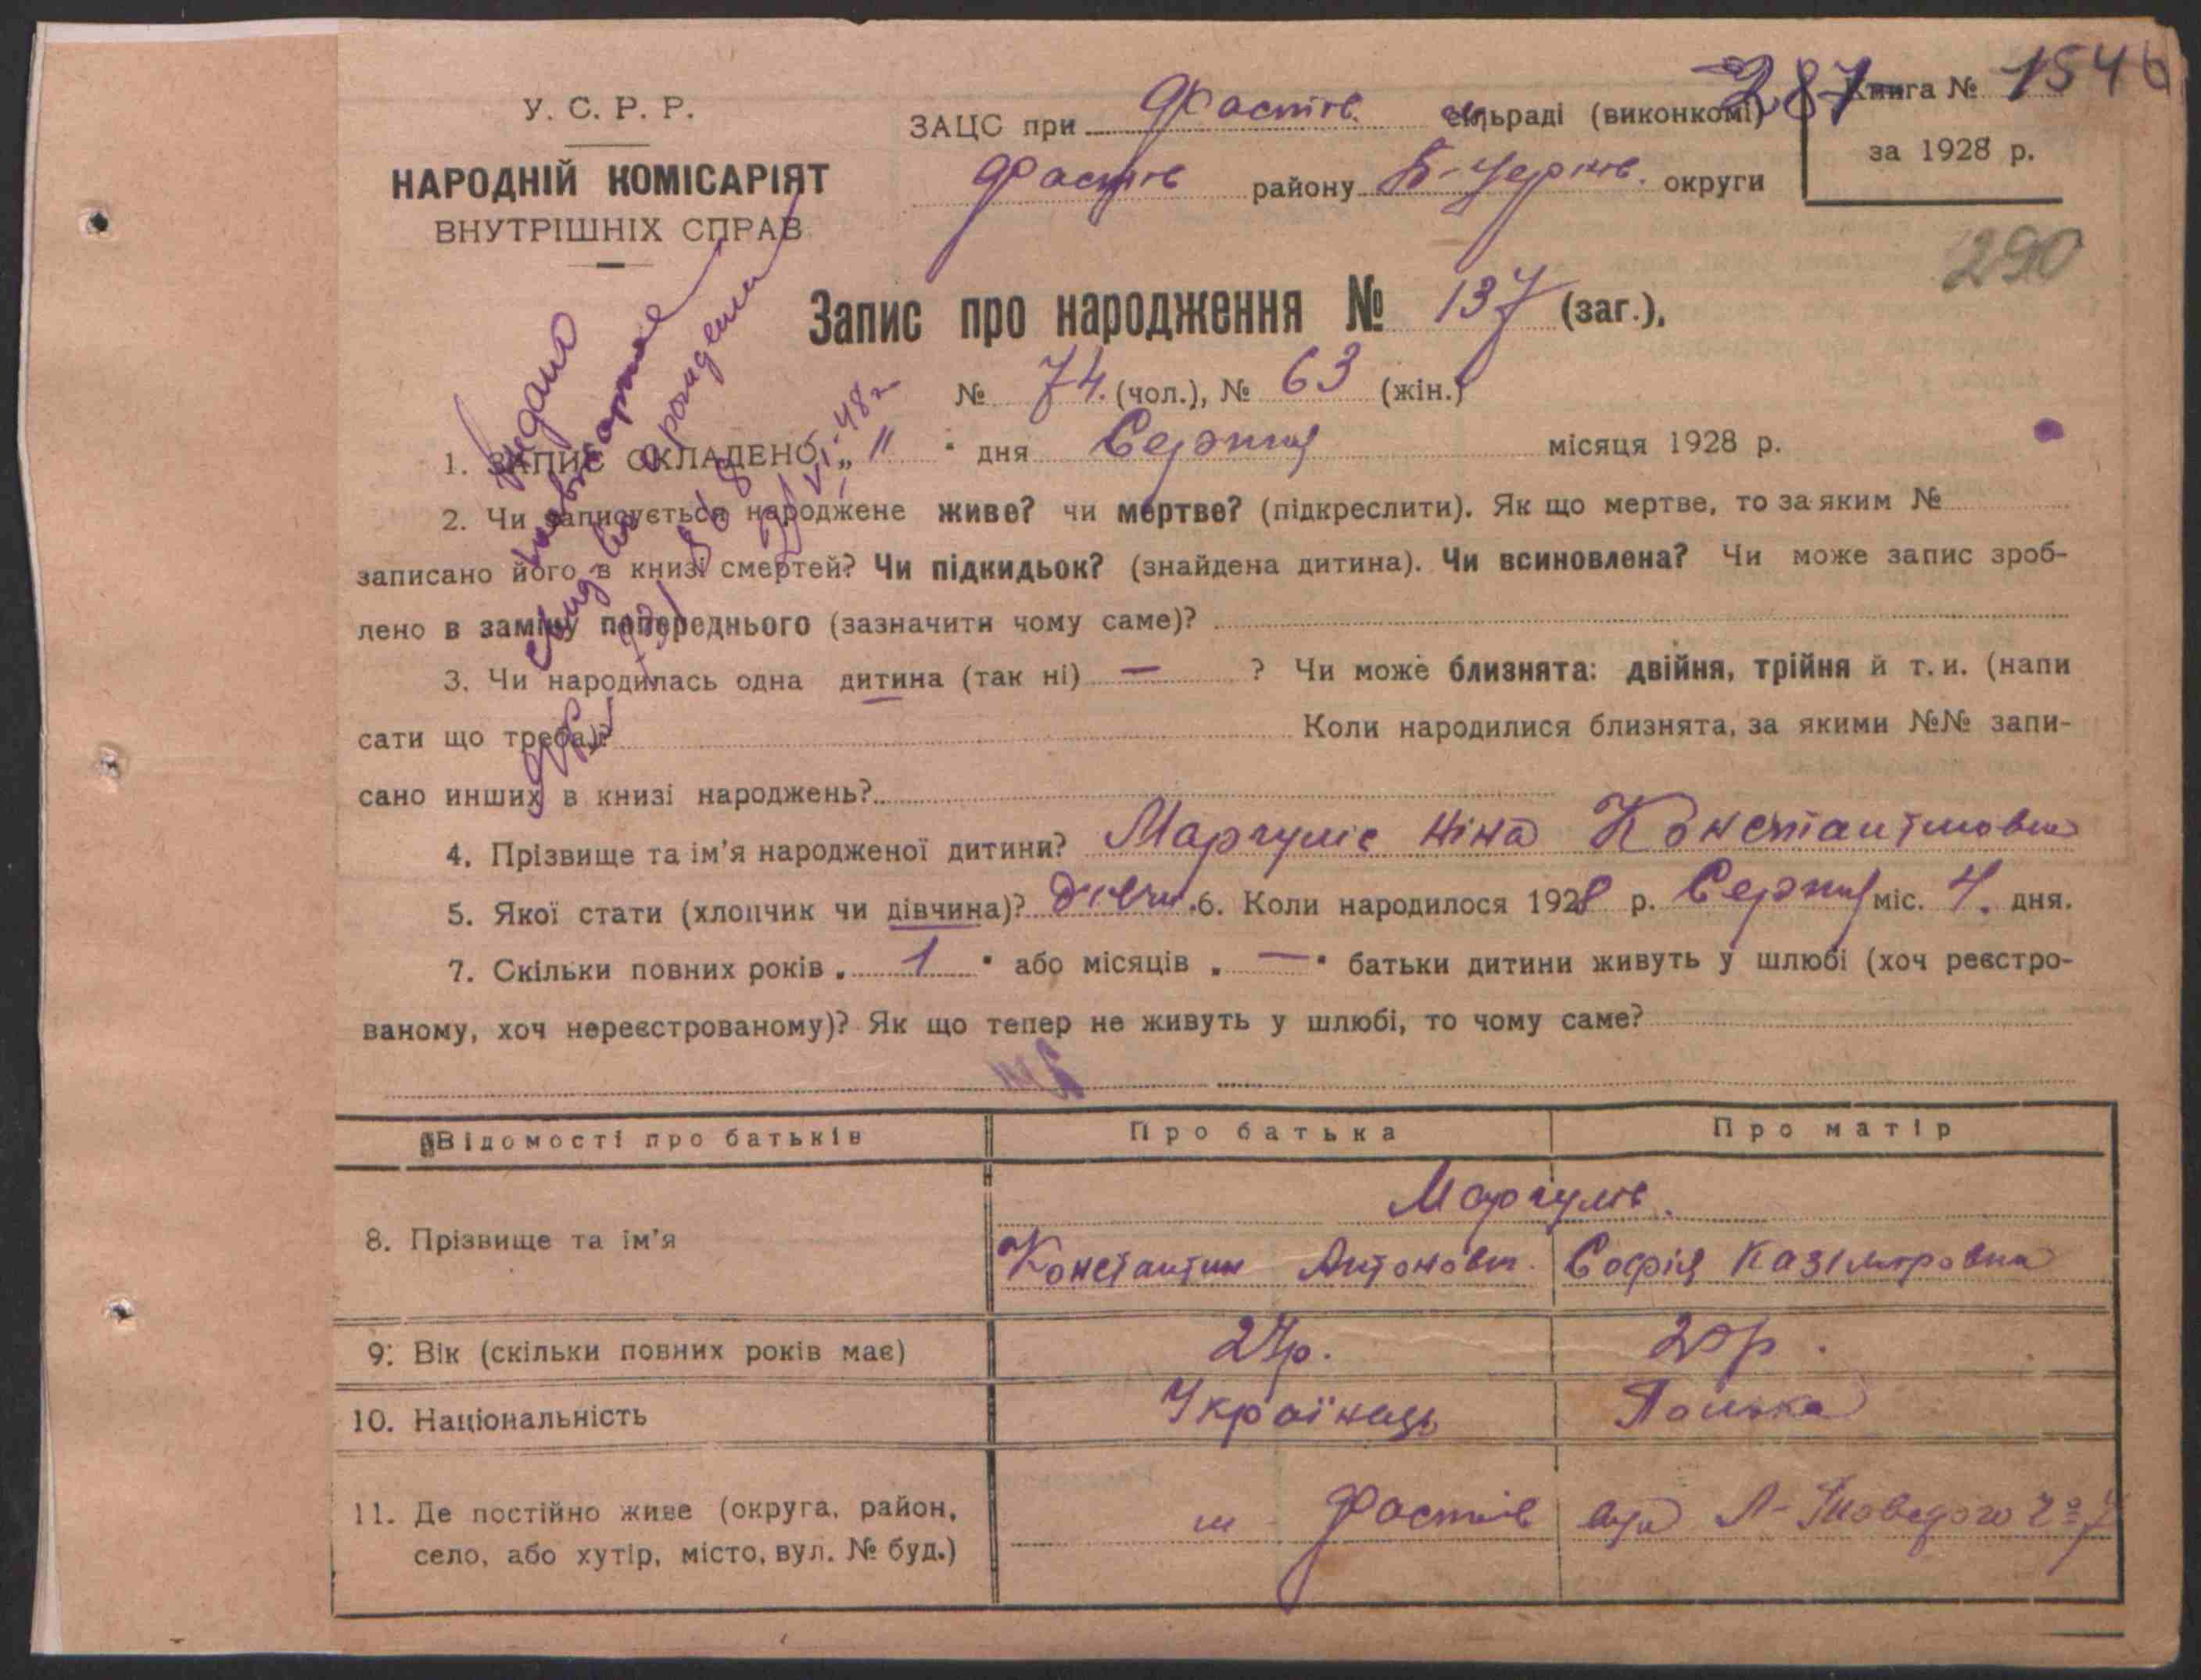 У. С. Р. Р.
НАРОДНІЙ КОМІСАРІЯТ
ВНУТРІШНІХ СПРАВ
ЗАЦС при Фастів. сільраді (виконкомі)
Фастів району Б-Церків. округи
287
Книга № 1546
за 1928 р.
290
Запис про народження № 137 (заг.),
№ 74. (чол.), № 63 (жін.)
Видано
повторное
свид во о рождении
1. ЗАПИС СКЛАДЕНО „ 11 " дня Серпня місяця 1928 р.
2. Чи записується народжене живе? чи мертве? (підкреслити). Як що мертве, то за яким №
записано його в книзі смертей? Чи підкидьок? (знайдена дитина). Чи всиновлена? Чи може запис зроб-
лено в заміну попереднього (зазначити чому саме)?
3. Чи народилась одна дитина (так ні) — ? Чи може близнята: двійня, трійня й т. и. (напи
сати що треба)?
Коли народилися близнята, за якими №№ запи-
сано инших в книзі народжень?
4. Прізвище та ім'я народженої дитини? Маргуліс Ніна Константиновна
5. Якої стати (хлопчик чи дівчина)? дівчи. 6. Коли народилося 1928 р. Серпня міс. 4. дня.
7. Скільки повних років „ 1 " або місяців „ — " батьки дитини живуть у шлюбі (хоч реєстро-
ваному, хоч нереєстрованому)? Як що тепер не живуть у шлюбі, то чому саме?
Відомості про батьків Про батька Про матір
8. Прізвище та ім'я
Маргуліс.
Константин Антонович. Софія Казіміровна
9. Вік (скільки повних років має) 27р. 20р.
10. Національність Українець Полька
11. Де постійно живе (округа, район,
село, або хутір, місто, вул. № буд.)
м. Фастів вул